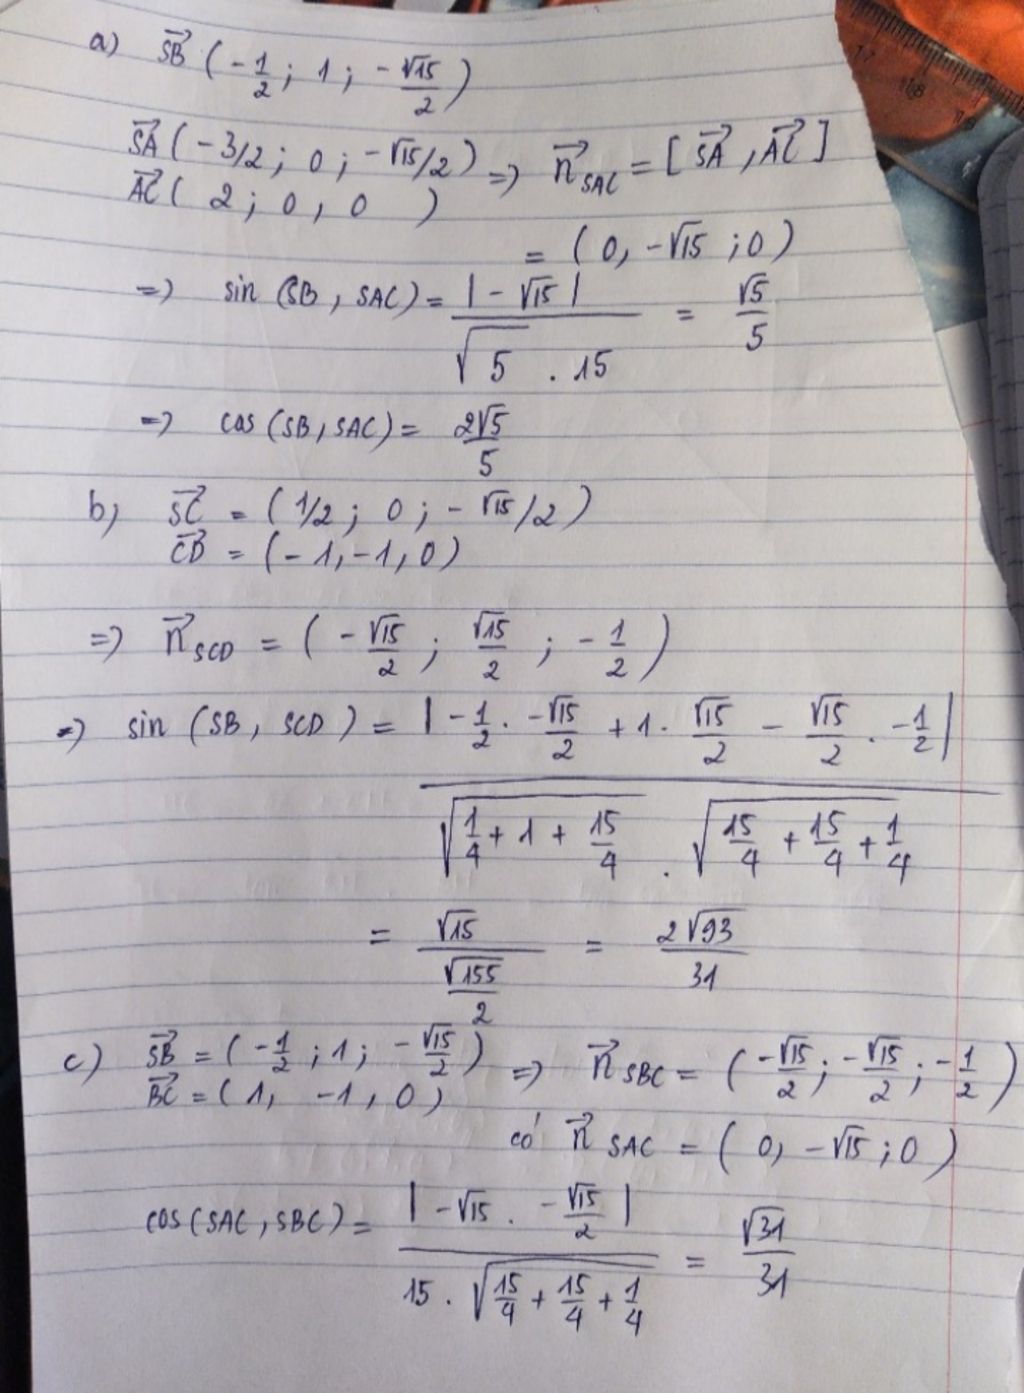 a) SB⃗ ( -1/2 ; 1 ; -√15/2 )
SA⃗ ( -3/2 ; 0 ; -√15/2 ) => n⃗ SAC = [ SA⃗ , AC⃗ ]
AC⃗ ( 2 ; 0 , 0 )
= ( 0, -√15 ; 0 )
=> sin (SB, SAC) = |-√15| / √5 . 15 = √5/5
=> cos (SB, SAC) = 2√5/5
b) SC⃗ = ( 1/2 ; 0 ; -√15/2 )
CD⃗ = ( -1, -1, 0 )
=> n⃗ SCD = ( -√15/2 ; √15/2 ; -1/2 )
=> sin (SB, SCD) = | -1/2 . -√15/2 + 1 . √15/2 - √15/2 . -1/2 | / √(1/4 + 1 + 15/4) . √(15/4 + 15/4 + 1/4)
= √15 / (√155/2) = 2√93/31
c) SB⃗ = ( -1/2 ; 1 ; -√15/2 ) => n⃗ SBC = ( -√15/2 ; -√15/2 ; -1/2 )
BC⃗ = ( 1, -1, 0 )
có n⃗ SAC = ( 0, -√15 ; 0 )
cos (SAC, SBC) = | -√15 . -√15/2 | / 15 . √(15/4 + 15/4 + 1/4) = √31/31